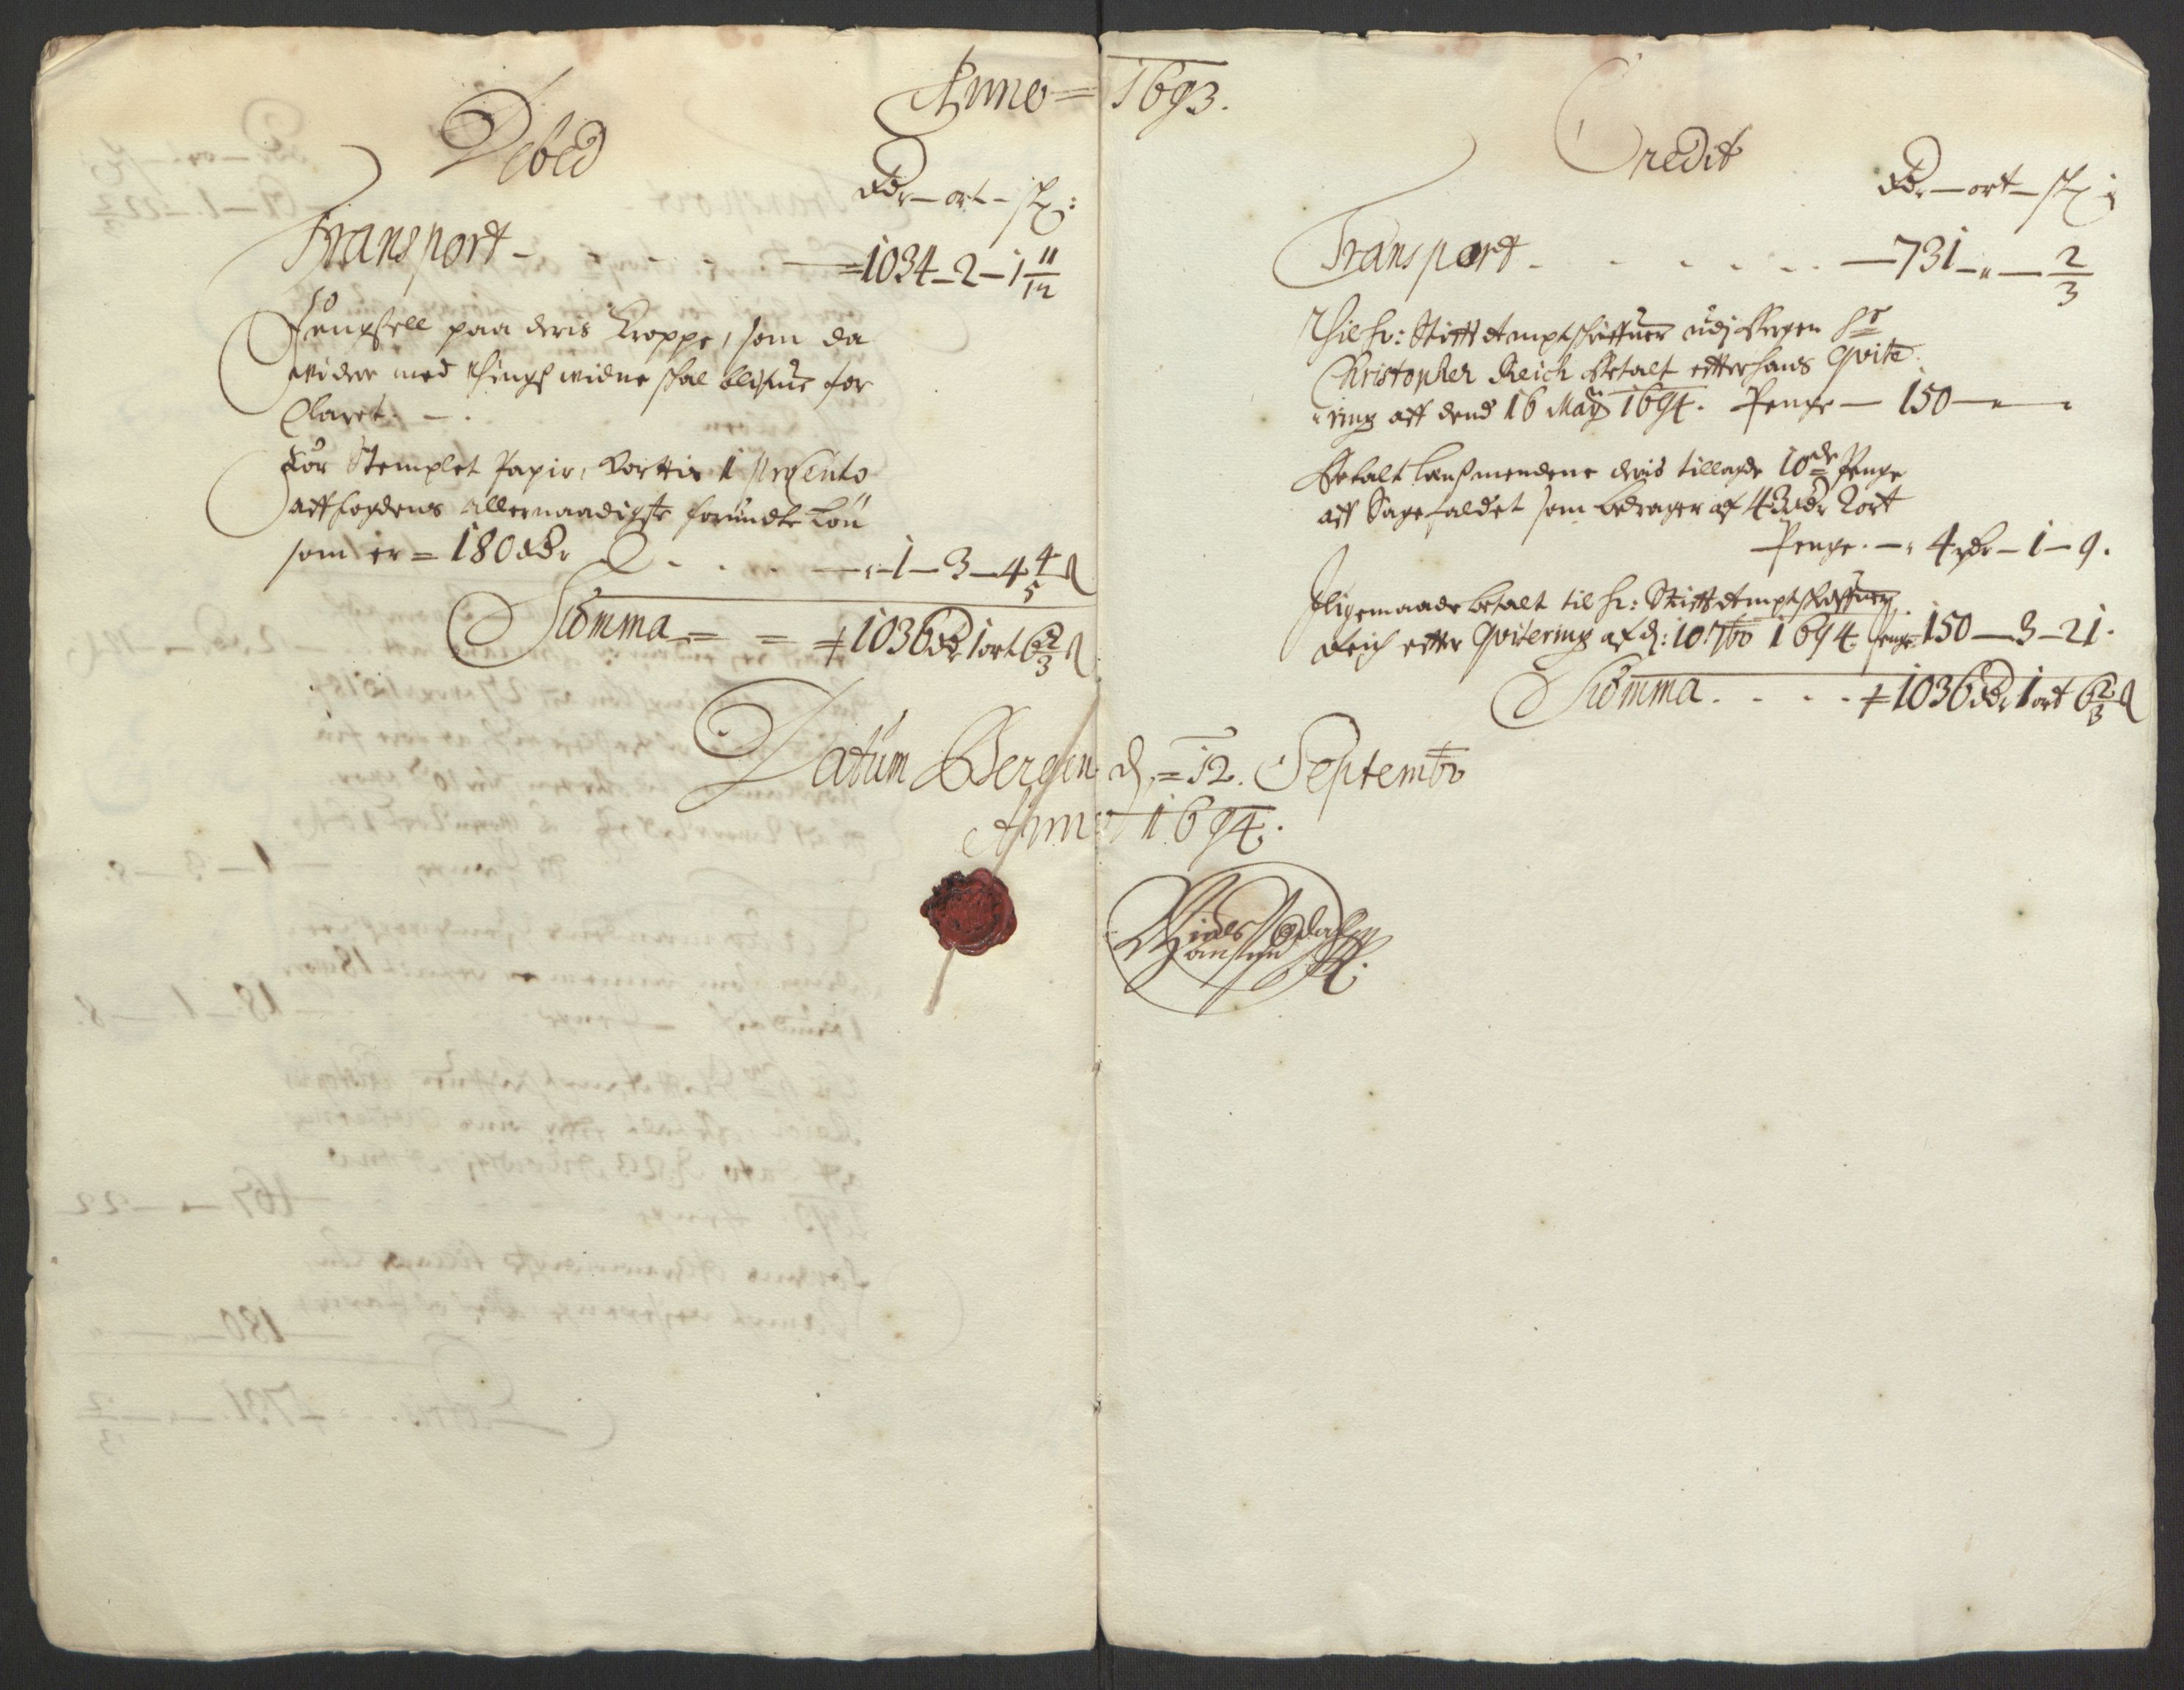 Anno = 1693.
Debed
Rdr - ort - sk:
Transport - - - - 1034 - 2 - 1 11/12
Fengsell paa deris Kroppe, som da
widere med Tings widne skal blifue for
Claret. -
For Stemplet Papir, Korttis 1 procento
aff fogdens allernaadigste forundte Løn
som er = 180 Rdr - - - - 1 - 3 - 4 4/5 s
Summa = = 1036 Rdr 1 ort 6 2/3 s
Credit
Rdr - ort - sk:
Transport - - - - - - 731 - " - 2/3
Til hr: Stifft Amptskriffuer udj Bergen Sr
Christopher Reich Betalt effter hans Qvite
ring aff dend 16 May 1694. Penge - 150 - " - "
Betalt Lensmendene deris tillagde 10de Penge
aff Sagefaldet som bedrager af 43 Rdr 2 ort
Penge. - 4 Rdr - 1 - 9.
Iligemaade betalt til hr: Stifft Amptskriffuer
Reich effter Qvitering af d: 10 7br 1694 Penge 150 - 3 - 21.
Summa. - - - 1036 Rdr 1 ort 6 2/3 s
Datum Bergen d. = 12. Septembr
Anno 1694.